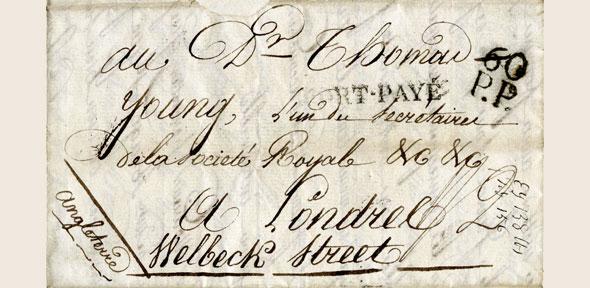 au Dr Thomas
60
P.P.
RT-PAYÉ
Young, l'un des Secretaires
de la Société Royale &c &c
A Londres
Welbeck Street
Angleterre